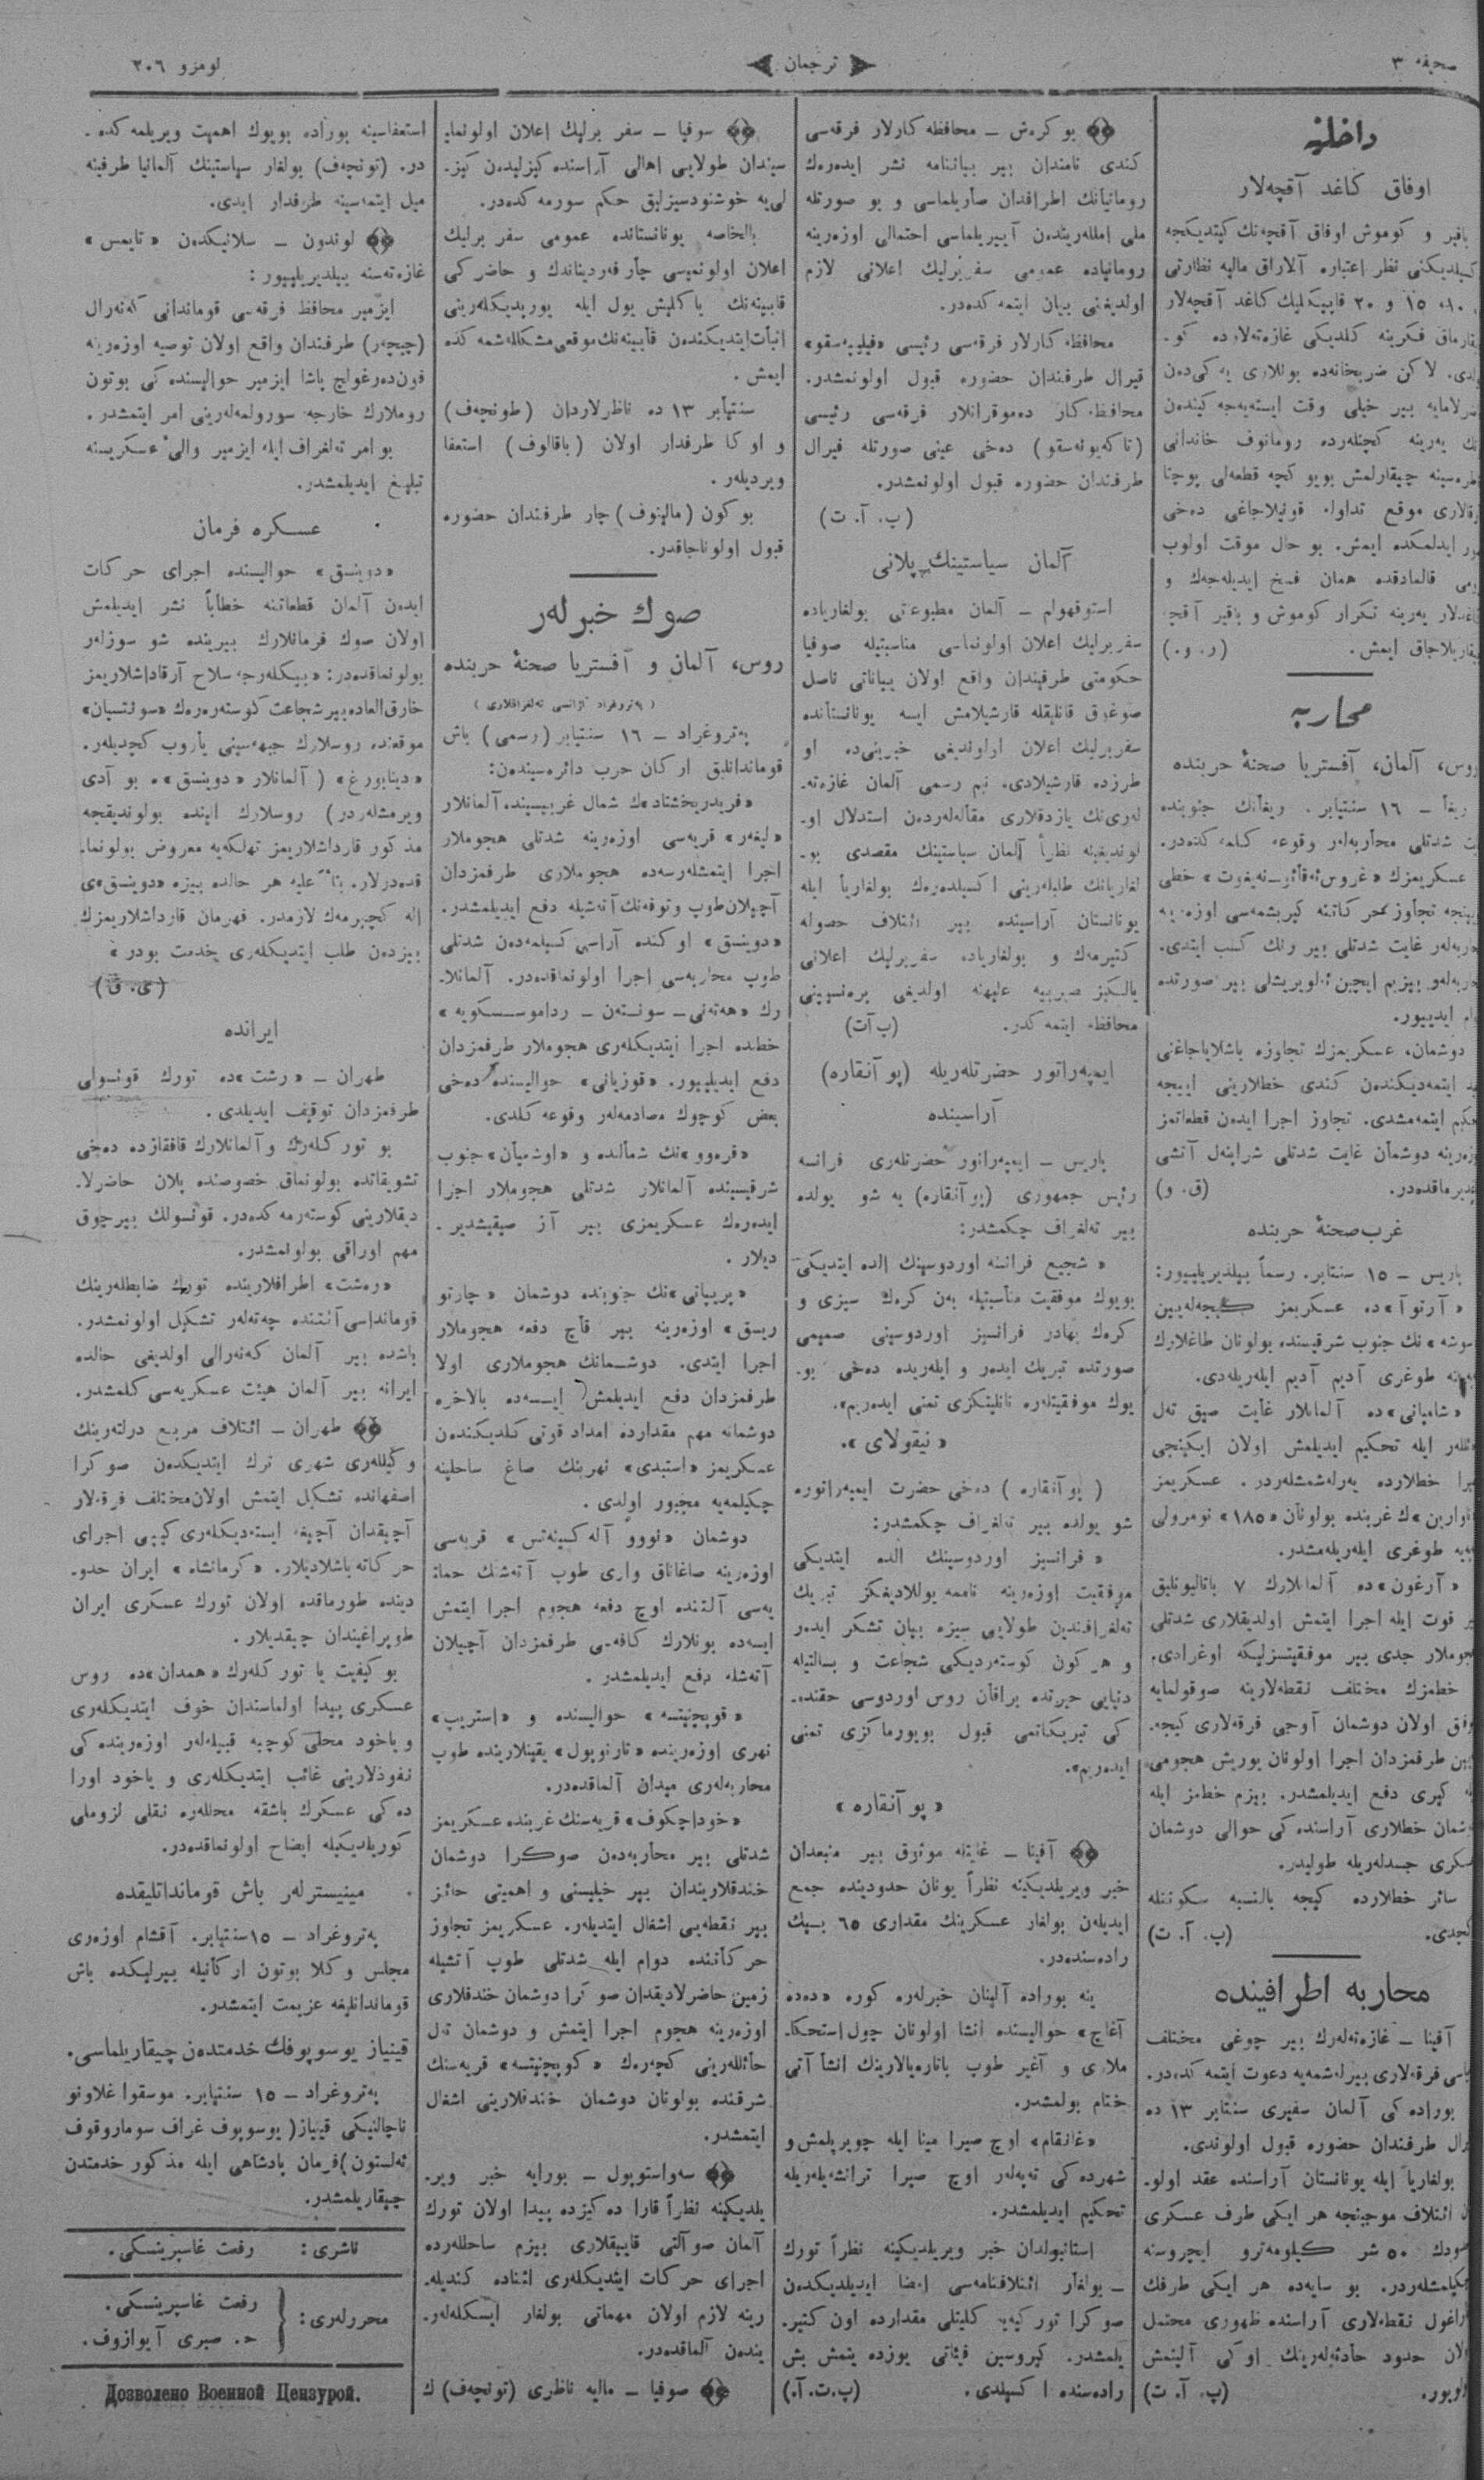 صحیفه ۳
ترجمان
نومرو ۲۰٦
داخلیه
اوفاق كاغد آقچه‌لار
باقیر و كوموش اوفاق آقچه‌نك كیتدیكجه
نظر اعتباره آلاراق مالیه نظارتی
۱۰، ۱٥ و ۲۰ قاپیكلیك كاغد آقچه‌لار
فكرینه كلدیكی غازه‌ته‌لارده كو-
لاكن ضربخانه‌ده بونلاری یه كی‌دن
بیر خیلی وقت ایسته‌یه‌جه كیندن
یه‌رینه كچنلرده رومانوف خاندانی
چیقارلمش بویو كچه قطعه‌لی پوچتا
موقع تداوله قونیلاجاغی دخی
ایدلمكده ایمش. بو حال موقت اولوب
قالمادقده همان فسخ ایدیله‌جه‌ك و
یه‌رینه تكرار كوموش و باقیر آقچه
ایمش. (ر. و.)
محاربه
روس، آلمان، آفستریا صحنۀ حربنده
ریغا – ۱٦ سنتیابر. ریغانك جنوبنده
شدتلی محاربه‌لر وقوعه كلمه كده‌در.
دوشمان، عسكریمزك تجاوزه باشلایاجاغنی
ایتمه‌دیكندن كندی خطلارینی اییجه
ایتمه‌مشدی. تجاوز اجرا ایدن قطعاتمز
دوشمان غایت شدتلی شراپنه‌ل آتشی
(ق. و)
غرب صحنۀ حربنده
پاریس – ۱٥ سنتابر. رسماً بیلدیریلییور:
« آرتوآ »ده عسكریمز كیجه‌له‌یین
نك جنوب شرقیسنده بولونان طاغلارك
طوغری آدیم آدیم ایله‌ریله‌دی.
« شامپانی »ده آلمانلار غایت صیق تەل
ایله تحكیم ایدیلمش اولان ایكینجی
خطلارده یه‌رله‌شمشله‌ردر. عسكریمز
غربنده بولونان «۱۸٥» نومرولی
طوغری ایله‌ریله‌مشدر.
« آرغون »ده آلمانلارك ۷ باتالیونلیق
قوت ایله اجرا ایتمش اولدیقلاری شدتلی
جدی بیر موفقیتسزلیكه اوغرادی.
خطمزك مختلف نقطه‌لارینه صوقولمایه
اولان دوشمان آوجی فرقه‌لاری كیجه-
طرفمزدان اجرا اولونان یوریش هجومی
كیری دفع ایدیلمشدر. بیزم خطمز ایله
خطلاری آراسنده كی حوالی دوشمان
جسدله‌ریله طولیدر.
سائر خطلارده كیجه بالنسبه سكونتله
(پ. آ. ت)
محاربه اطرافینده
آفینا – غازه‌ته‌له‌رك بیر چوغی مختلف
فرقه‌لاری بیرله‌شمه‌یه دعوت ایتمه كده‌در.
بوراده كی آلمان سفیری سنتابر ۱۳ ده
طرفندان حضوره قبول اولوندی.
بولغاریا ایله یونانستان آراسنده عقد اولو-
ائتلاف موجبنجه هر ایكی طرف عسكری
٥۰ شر كیلومه‌ترو ایچروسنه
بو سایه‌ده هر ایكی طرفك
نقطه‌لاری آراسنده ظهوری محتمل
حدود حادثه‌له‌رینك اوكی آلینمش
(پ. آ. ت)
بو كره‌ش – محافظه كارلار فرقه‌سی
كندی نامندان بیر بیاننامه نشر ایده‌ره‌ك
رومانیانك اطرافدان صاریلماسی و بو صورتله
ملی امللەریندن آییریلماسی احتمالی اوزه‌رینه
رومانیاده عمومی سفربرلیك اعلانی لازم
اولدیغنی بیان ایتمه كده‌در.
محافظه كارلار فرقه‌سی رئیسی «فیلیپه‌سقو»
قیرال طرفندان حضوره قبول اولونمشدر.
محافظه كار ده‌موقراتلار فرقه‌سی رئیسی
(تا كه‌یونه‌سقو) ده‌خی عینی صورتله قیرال
طرفندان حضوره قبول اولونمشدر.
(پ. آ. ت)
آلمان سیاستینك پلانی
استوقهولم – آلمان مطبوعاتی بولغاریاده
سفربرلیك اعلان اولونماسی مناسبتیله صوفیا
حكومتی طرفیندان واقع اولان بیاناتی ناصل
صوغوق قانلیقله قارشیلامش ایسه یونانستانده
سفربرلیك اعلان اولوندیغی خبرینی‌ده او
طرزده قارشیلادی. نیم رسمی آلمان غازه‌ته-
له‌ری‌نك یازدقلاری مقاله‌لەردەن استدلال او-
لوندیغینه نظراً آلمان سیاستینك مقصدی بو-
لغاریانك طلبله‌رینی اكسیلده‌ره‌ك بولغاریا ایله
یونانستان آراسینده بیر ائتلاف حصوله
كتیرمه‌ك و بولغاریاده سفربرلیك اعلانی
یالكیز صربییه علیهنه اولدیغی پره‌نسیپنی
محافظه ایتمه كدر. (پ آت)
ایمپه‌راتور حضرتله‌ریله (پو آنقاره)
آراسینده
پاریس – ایمپه‌راتور حضرتله‌ری فرانسه
رئیس جمهوری (پو آنقاره) یه شو یولده
بیر ته‌لغراف چكمشدر:
« شجیع فرانسه اوردوسینك الده ایتدیكی
بویوك موفقیت مناسبتیله به‌ن كره‌ك سیزی و
كره‌ك بهادر فرانسیز اوردوسینی صمیمی
صورتده تبریك ایده‌ر و ایله‌ریده ده‌خی بو-
یوك موفقیتله‌ره نائلیتكزی تمنی ایده‌ریم».
« نیقولای ».
( پو آنقاره ) ده‌خی حضرت ایمپه‌راتوره
شو یولده بیر ته‌لغراف چكمشدر:
« فرانسیز اوردوسینك الده ایتدیكی
موفقیت اوزه‌رینه ناممه یوللادیغكز تبریك
ته‌لغرافندین طولایی سیزه بیان تشكر ایده‌ر
و هر كون كوسته‌ردیكی شجاعت و بسالتیله
دنیایی حیرتده براقان روس اوردوسی حقنده-
كی تبریكاتمی قبول بویورماكزی تمنی
ایده‌ریم».
« پو آنقاره »
آفینا – غایتله موثوق بیر منبعدان
خبر ویریلدیكینه نظراً یونان حدودینده جمع
ایدیله‌ن بولغار عسكرینك مقداری ٦٥ بیك
راده‌سنده‌در.
ینه بوراده آلینان خبرله‌ره كوره «ده‌ده
آغاچ» حوالیسنده انشا اولونان چول استحكا-
ملاری و آغیر طوپ باتاره‌یالارینك انشاآتی
ختام بولمشدر.
شهرده كی ته‌په‌له‌ر اوچ صیرا ترانشه‌یله‌ریله
تحكیم ایدیلمشدر.
استانبولدان خبر ویریلدیكینه نظراً تورك
– بولغار ائتلافنامه‌سی امضا ایدیلدیكدن
صوكرا توركیه‌یه كلیتلی مقدارده اون كتیر-
یلمشدر. كیروسین فیئاتی یوزده یتمش بش
راده‌سنده اكسیلدی. (پ.ت.آ.)
سوفیا – سفر برلیك اعلان اولونما-
سیندان طولایی اهالی آراسنده كیزلیدن كیز-
لی‌یه خوشنودسیزلیق حكم سورمه كده‌در.
بالخاصه یونانستانده عمومی سفر برلیك
اعلان اولونمیسی چار فه‌ردیناندك و حاضر كی
قابینه‌نك یاكلیش یول ایله یوریدیكله‌رینی
اثبات ایتدیكندن قابینه‌نك موقعی مشكللەشمه كده
ایمش.
سنتیابر ۱۳ ده ناظرلاردان (طونچه‌ف)
و اوكا طرفدار اولان (باقالوف) استعفا
ویردیله‌ر.
بو كون (مالینوف) چار طرفندان حضوره
قبول اولوناجاقدر.
صوك خبرله‌ر
روس، آلمان و آفستریا صحنۀ حربنده
(په‌تروغراد آژانسی ته‌لغرافلاری)
په‌تروغراد – ۱٦ سنتیابر (رسمی) باش
قوماندانلیق اركان حرب دائره‌سیندەن:
«فریدریخشتاد»ك شمال غربیسینده آلمانلار
قریه‌سی اوزه‌رینه شدتلی هجوملار
اجرا ایتمشله‌رسه‌ده هجوملاری طرفمزدان
آچیلان طوپ و توفه‌نك آتەشیله دفع ایدیلمشدر.
«دوینسق» اوكنده آراسی كسیلمه‌دەن شدتلی
طوپ محاربه‌سی اجرا اولونماقده‌در. آلمانلا-
خطده اجرا ایتدیكله‌ری هجوملار طرفمزدان
دفع ایدیلییور. «قوزیانی» حوالیسنده ده‌خی
بعض كوچوك مصادمه‌له‌ر وقوعه كلدی.
نك شمالنده و «اوشمیان» جنوب
شرقیسینده آلمانلار شدتلی هجوملار اجرا
ایده‌ره‌ك عسكریمزی بیر آز صیقیشدیر-
دیلار.
«پریپاتی»نك جنوبنده دوشمان «چارتو
ریسق» اوزه‌رینه بیر قاچ دفعه هجوملار
اجرا ایتدی. دوشمانك هجوملاری اولا
طرفمزدان دفع ایدیلمش ایسه‌ده بالاخره
دوشمانه مهم مقدارده امداد قوتی كلدیكندەن
عسكریمز نهرینك صاغ ساحلینه
چكیلمه‌یه مجبور اولدی.
دوشمان «نووو آله كسینەتس» قریه‌سی
اوزه‌رینه صاغاناق واری طوپ آتەشنك حما-
یه‌سی آلتنده اوچ دفعه هجوم اجرا ایتمش
ایسه‌ده بونلارك كافه‌سی طرفمزدان آچیلان
آتەشله دفع ایدیلمشدر.
حوالیسنده و «استریپ»
نهری اوزه‌رینده «تارنوپول» یقینلارینده طوپ
محاربه‌له‌ری میدان آلماقده‌در.
«خوداچكوف» قریه‌سنك غربنده عسكریمز
شدتلی بیر محاربه‌دەن صوكرا دوشمان
خندقلاریندان بیر خیلیسنی و اهمیتی حائز
بیر نقطه‌یی اشغال ایتدیله‌ر. عسكریمز تجاوز
حركاتنده دوام ایله شدتلی طوپ آتشیله
زمین حاضرلادیقدان صوكرا دوشمان خندقلاری
اوزه‌رینه هجوم اجرا ایتمش و دوشمان تەل
حائللەرینی كچه‌ره‌ك قریه‌سنك
شرقنده بولونان دوشمان خندقلارینی اشغال
ایتمشدر.
سه‌واستوپول – بورایه خبر ویر-
یلدیكینه نظراً قارا ده‌كیزده پیدا اولان تورك
آلمان صو آلتی قاییقلاری بیزم ساحللەرده
اجرای حركات ایتدیكله‌ری اثناده كندیله-
رینه لازم اولان مهماتی بولغار ایسكله‌له‌ر-
یندەن آلماقده‌در.
صوفیا – مالیه ناظری (تونچه‌ف) ك
استعفاسینه بوراده بویوك اهمیت ویریلمه كده-
در. (تونچه‌ف) بولغار سیاستینك آلمانیا طرفینه
میل ایتمه‌سینه طرفدار ایدی.
لوندون – سلانیكدەن «تایمس»
غازه‌ته‌سنه بیلدیریلییور:
ایزمیر محافظ فرقه‌سی قوماندانی كه‌نه‌رال
طرفندان واقع اولان توصیه اوزه‌رینه
پاشا ایزمیر حوالیسنده كی بوتون
روملارك خارجه سورولمه‌له‌رینی امر ایتمشدر.
بو امر ته‌لغراف ایله ایزمیر والی عسكریسنه
تبلیغ ایدیلمشدر.
عسكره فرمان
«دوینسق» حوالیسنده اجرای حركات
ایدەن آلمان قطعاتنه خطاباً نشر ایدیلمش
اولان صوك فرمانلارك بیرینده شو سوزله‌ر
بولونماقده‌در: «بیكله‌رجه سلاح آرقاداشلاریمز
خارق العاده بیر شجاعت كوسته‌ره‌ره‌ك «سونتسیان»
موقعنده روسلارك جبهه‌سینی یاروب كچدیله‌ر.
«دینابورغ» (آلمانلار «دوینسق»ه بو آدی
ویرمشله‌ردر) روسلارك الینده بولوندیقچه
مذكور قارداشلاریمز تهلكه‌یه معروض بولونما-
قده‌درلار. بناءً علیه هر حالده بیزه «دوینسق»ی
اله كچیرمه‌ك لازمدر. قهرمان قارداشلاریمزك
بیزدەن طلب ایتدیكله‌ری خدمت بودر»
(ی. ق)
ایرانده
طهران – «رشت»ده تورك قونسولی
طرفمزدان توقیف ایدیلدی.
بو توركله‌رك و آلمانلارك قافقازده ده‌خی
تشویقاتده بولونماق خصوصنده پلان حاضرلا-
دیقلارینی كوسته‌رمه كده‌در. قونسولك بیرچوق
مهم اوراقی بولونمشدر.
«ره‌شت» اطرافلارینده تورك ضابطله‌رینك
قومانداسی آلتنده چه‌ته‌له‌ر تشكیل اولونمشدر.
باشده بیر آلمان كه‌نه‌رالی اولدیغی حالده
ایرانه بیر آلمان هیئت عسكریه‌سی كلمشدر.
طهران – ائتلاف مربع دولتلەرینك
وكیللەری شهری ترك ایتدیكدەن صوكرا
اصفهانده تشكیل ایتمش اولان مختلف فرقه‌لار
آچیقدان آچیغه ایسته‌دیكله‌ری كیبی اجرای
حركاته باشلادیلار. «كرمانشاه» ایران حدو-
دینده طورماقده اولان تورك عسكری ایران
طوپراغیندان چیقدیلار.
بو كیفیت یا توركله‌رك «همدان»ده روس
عسكری پیدا اولماسندان خوف ایتدیكله‌ری
و یاخود محلی كوچبه قبیله‌له‌ر اوزه‌رینده كی
نفوذلارینی غائب ایتدیكله‌ری و یاخود اورا
ده كی عسكرك باشقه محللەره نقلی لزومی
كوریلدیكیله ایضاح اولونماقده‌در.
مینیسترله‌ر باش قوماندانلیقده
په‌تروغراد – ۱٥ سنتیابر. آقشام اوزه‌ری
مجلس وكلا بوتون اركانیله بیرلیكده باش
قوماندانلیغه عزیمت ایتمشدر.
قینیاز یوسوپوفك خدمتدەن چیقاریلماسی.
په‌تروغراد – ۱٥ سنتیابر. موسقوا غلاونو
ناچالنیكی قینیاز (یوسوپوف غراف سوماروقوف
ئه‌لستون) فرمان پادشاهی ایله مذكور خدمتدن
چیقاریلمشدر.
ناشری: رفعت غاسپرینسكی.
محررلەری: رفعت غاسپرینسكی.
ح. صبری آیوازوف.
Дозволено Военной Цензурой.